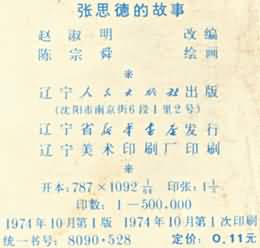 张思德的故事
赵淑明 改编
陈宗舜 绘画
※
辽宁人民出版社出版
(沈阳市南京街6段1里2号)
辽宁省新华书店发行
辽宁美术印刷厂印刷
※
开本:787×1092 1/64 印张:1 1/2
印数:1—500,000
1974年10月第1版 1974年10月第1次印刷
统一书号:8090·528 定价:0.11元